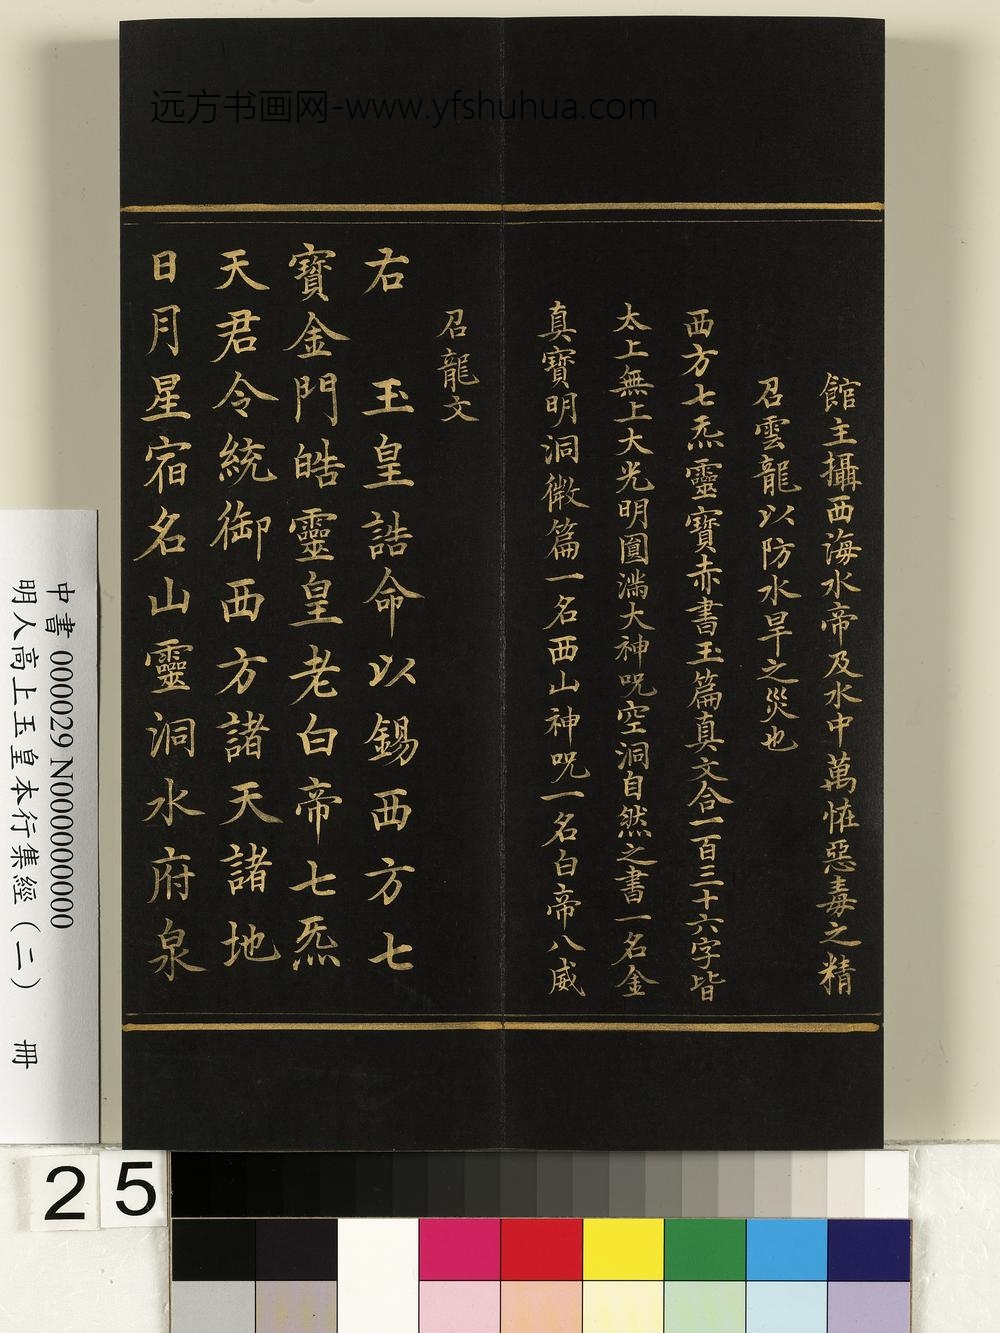 远方书画网-www.yfshuhua.com
館主攝西海水帝及水中萬恠惡毒之精
召雲龍以防水旱之災也
西方七炁靈寶赤書玉篇真文合一百三十六字皆
太上無上大光明圓滿大神呪空洞自然之書一名金
真寶明洞微篇一名西山神呪一名白帝八威
召龍文
右　玉皇誥命以錫西方七
寶金門皓靈皇老白帝七炁
天君令統御西方諸天諸地
日月星宿名山靈洞水府泉
中書 000029 N000000000
明人高上玉皇本行集經（二） 冊
25